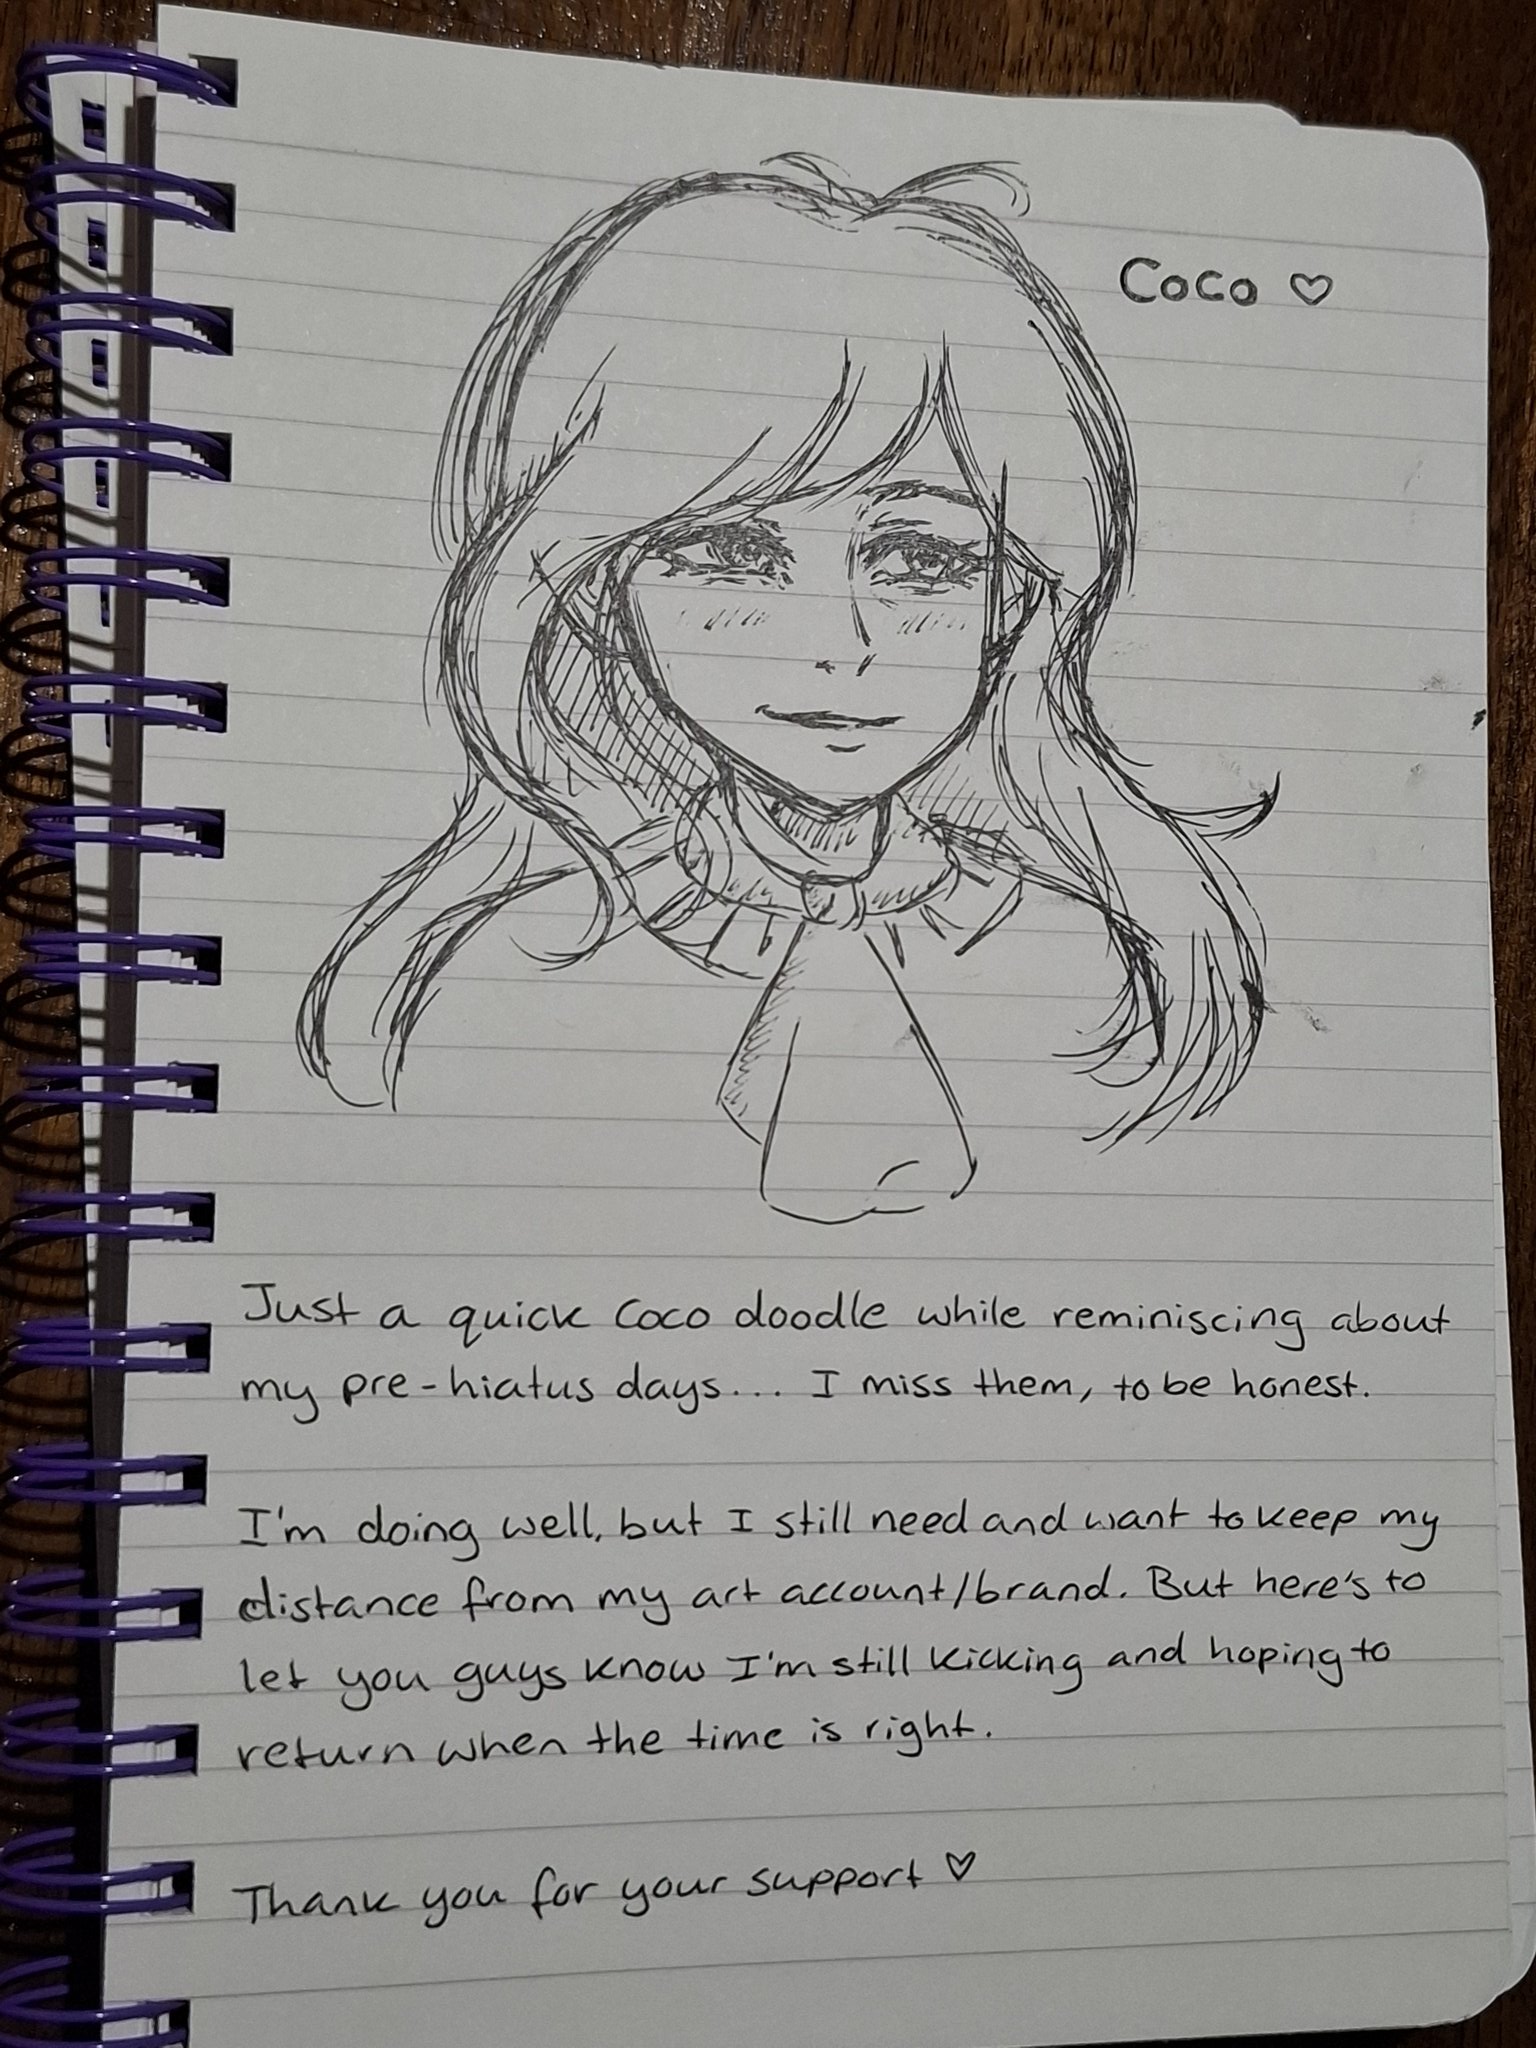 Coco ♡
Just a quick Coco doodle while reminiscing about
my pre-hiatus days... I miss them, to be honest.
I'm doing well, but I still need and want to keep my
distance from my art account/brand. But here's to
let you guys know I'm still kicking and hoping to
return when the time is right.
Thank you for your support ♡